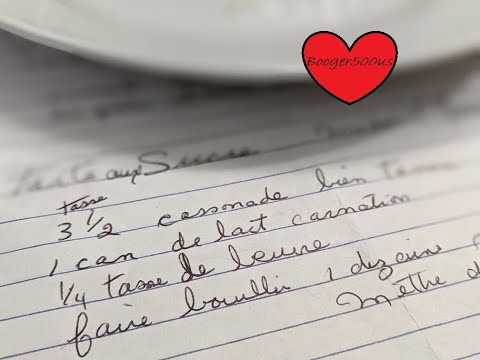 Booger500us
Tarte aux Sucre
tasse
3 1/2 cassonade bien
1 can de lait carnation
1/4 tasse de beurre
faire bouillir 1 dizaine
Methe d